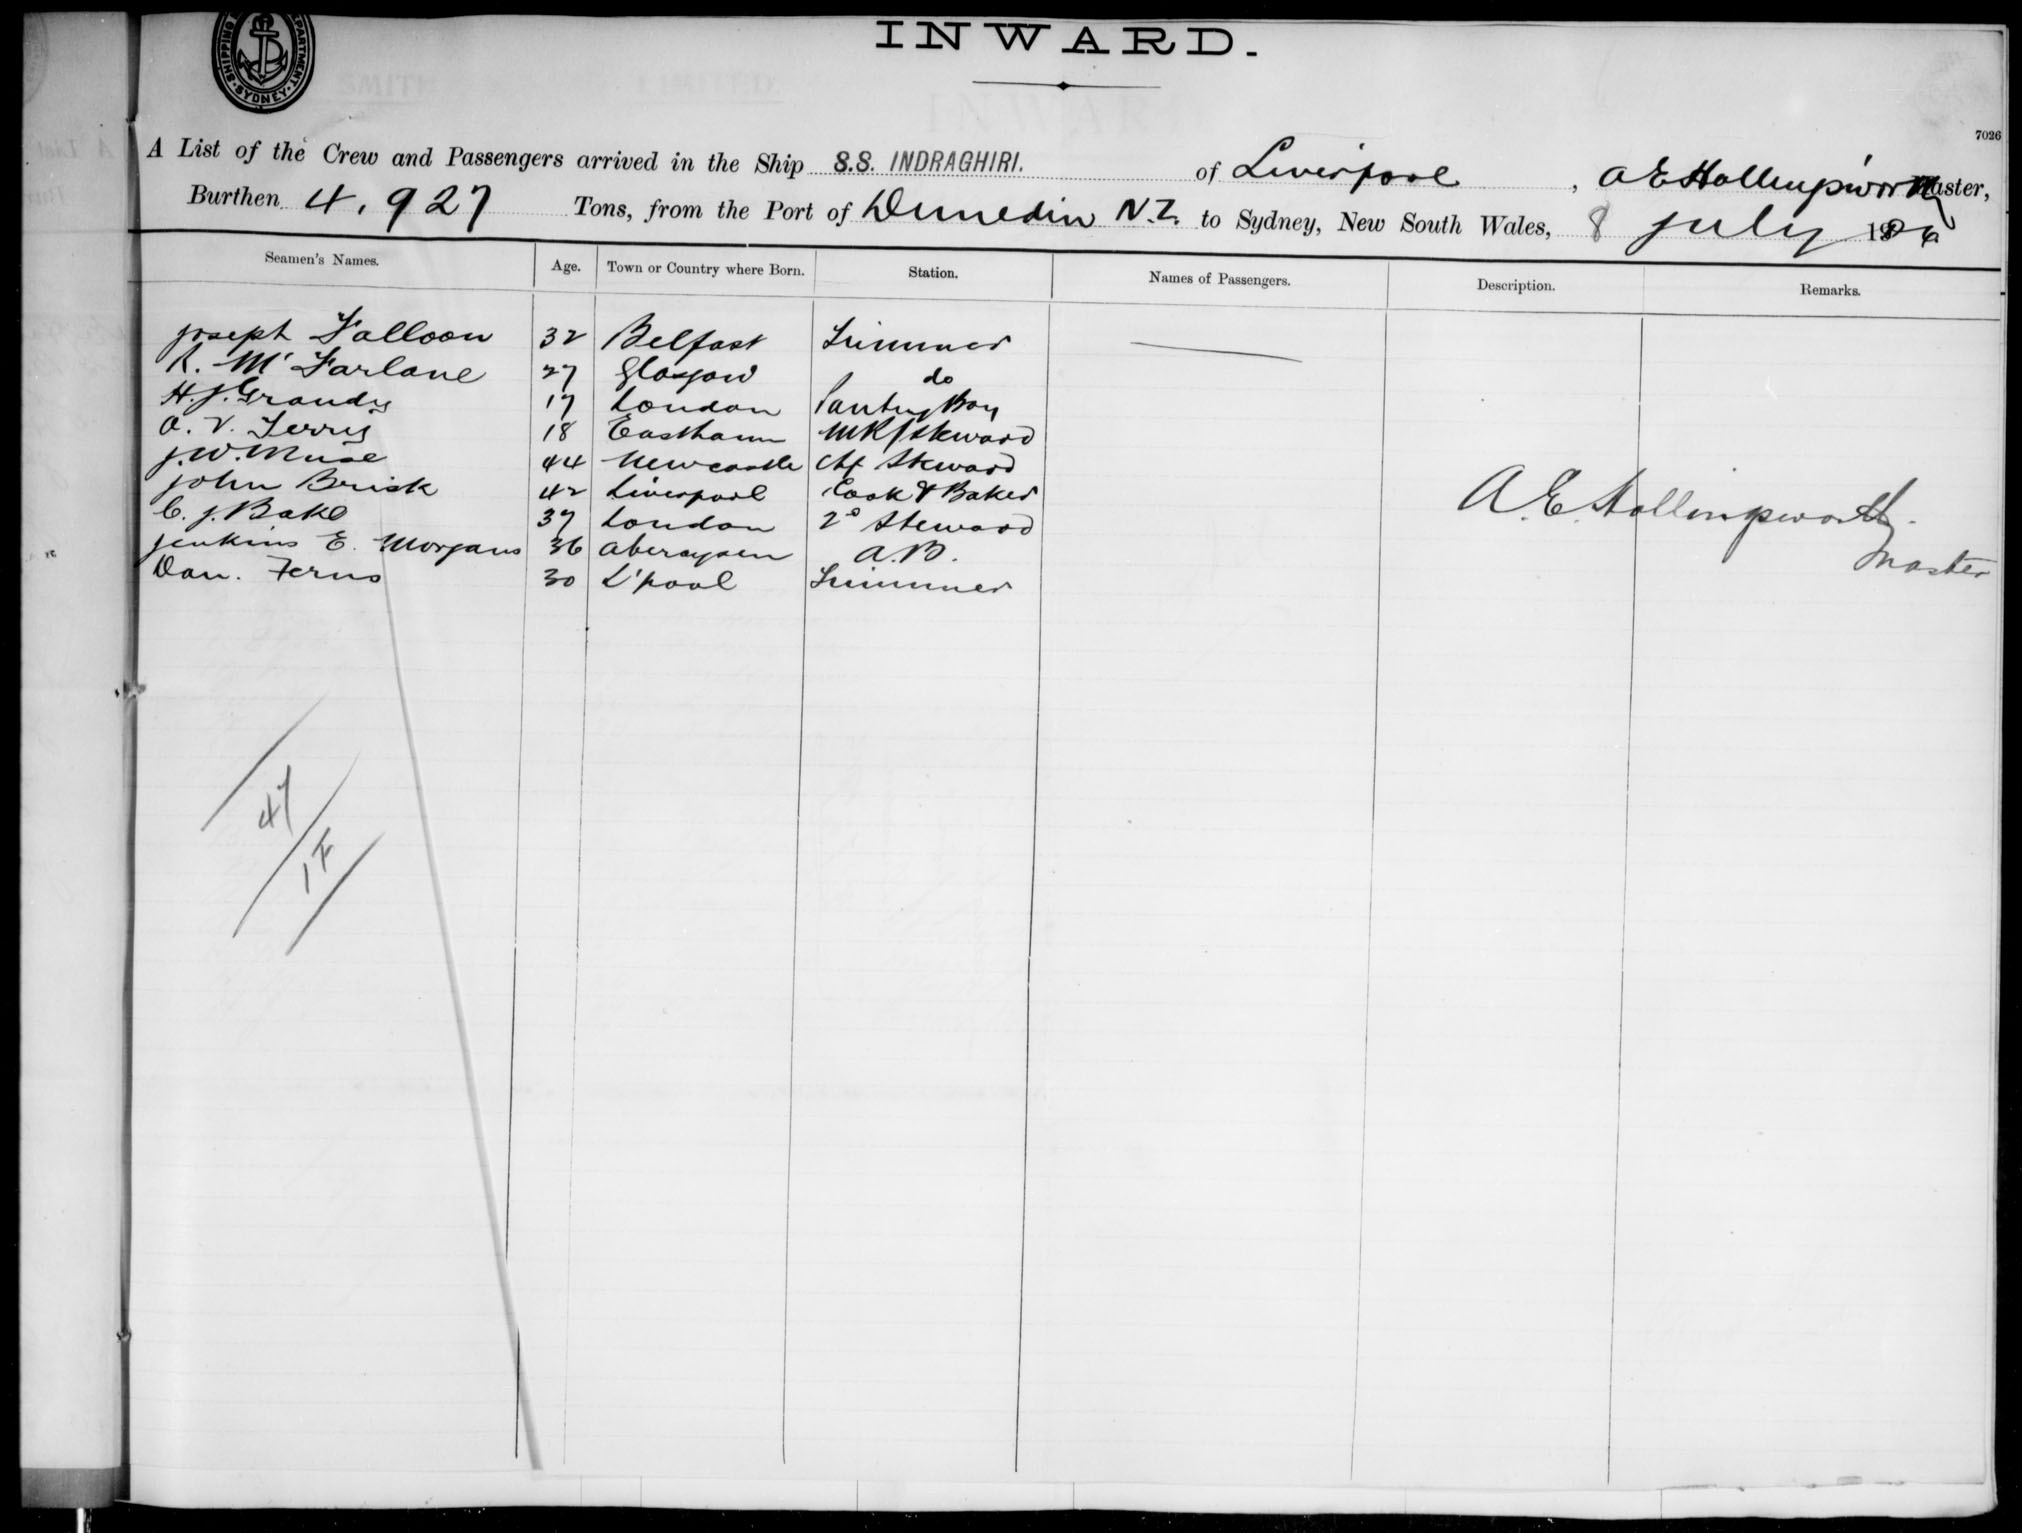 INWARD.
SHIPPING DEPARTMENT · SYDNEY ·
7026
A List of the Crew and Passengers arrived in the Ship S.S. INDRAGHIRI. of Liverpool, A E Hollingsworth Master,
Burthen 4,927 Tons, from the Port of Dunedin N.Z. to Sydney, New South Wales, 8 July 1906
Seamen's Names. Age. Town or Country where Born. Station. Names of Passengers. Description. Remarks.
Joseph Falloon 32 Belfast Trimmer
R. McFarlane 27 Glasgow do
H. J. Grandy 17 London Pantry Boy
A. V. Terry 18 Eastham Steward
J. W. Muse 44 Newcastle Chf Steward
John Brisk 42 Liverpool Cook & Baker
C. J. Bake 37 London 2º Steward
Jenkins E. Morgans 36 Aberayen A.B.
Dan. Ferns 30 L'pool Trimmer
A. E. Hollingsworth.
Master
47
1F